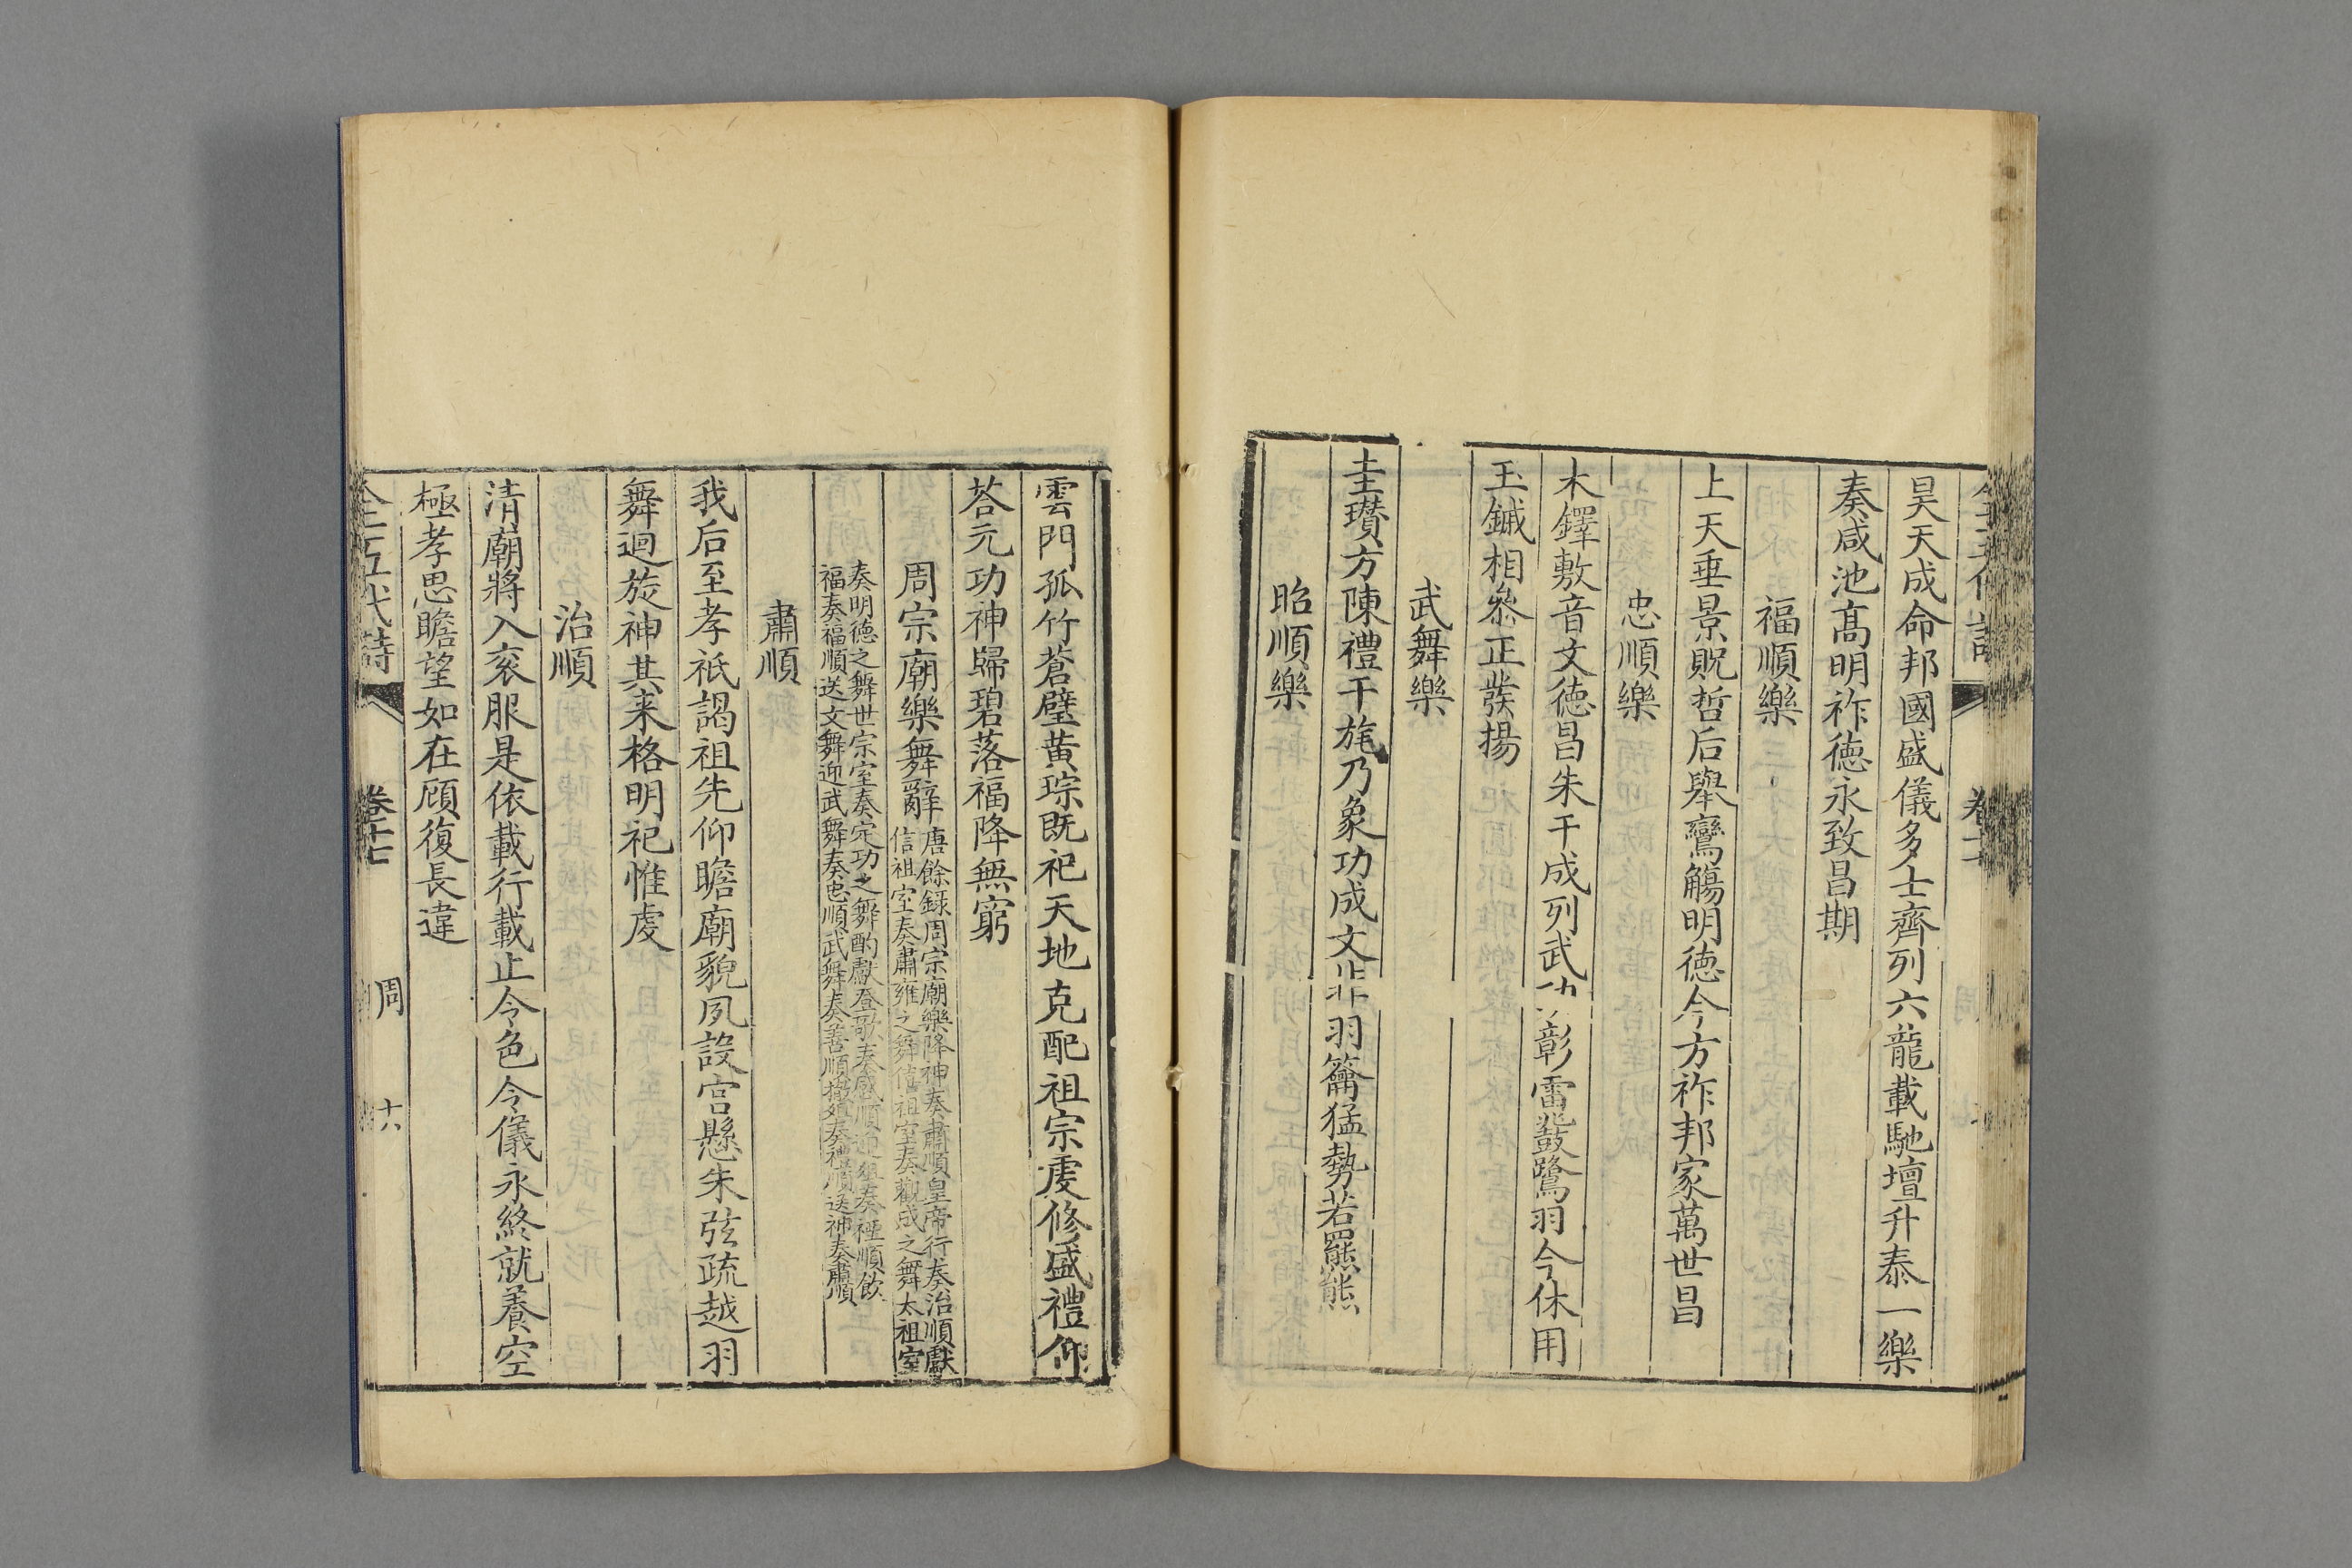 昊天成命邦國盛儀多士齊列六龍載馳壇升泰一樂
奏咸池髙明祚徳永致昌期
福順樂
上天垂景貺哲后舉鸞觴明徳今方祚邦家萬世昌
忠順樂
木鐸敷音文徳昌朱干成列武彰雷鼗鷺羽今休用
玉鏚相叅正發揚
武舞樂
圭瓚方陳禮干旄乃象功成文非羽籥猛勢若羆熊
昭順樂
雲門孤竹蒼璧黄琮既祀天地克配祖宗虔修盛禮仰
荅元功神歸碧落福降無窮
周宗廟樂舞辭
唐餘録周宗廟樂降神奏肅順皇帝行奏治順獻
信祖室奏肅雍之舞僖祖室奏觀成之舞太祖室
奏明徳之舞世宗室奏定功之舞酌獻登歌奏感順迎俎奏禋順飲
福奏福順送文舞迎武舞奏忠順武舞奏善順撤奏禮順送神奏肅順
肅順
我后至孝祗謁祖先仰瞻廟貌夙設宫懸朱弦疏越羽
舞迴旋神其来格明祀惟虔
治順
清廟將入衮服是依載行載止令色令儀永終就養空
極孝思瞻望如在顧復長違
全五代詩
卷十七
周
十六